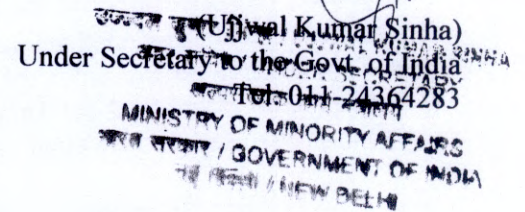 (Ujjwal Kumar Sinha)
KUMAR SINHA
Under Secretary to the Govt. of India
Tel: 011-24364283
MINISTRY OF MINORITY AFFAIRS
भारत सरकार / GOVERNMENT OF INDIA
नई दिल्ली / NEW DELHI